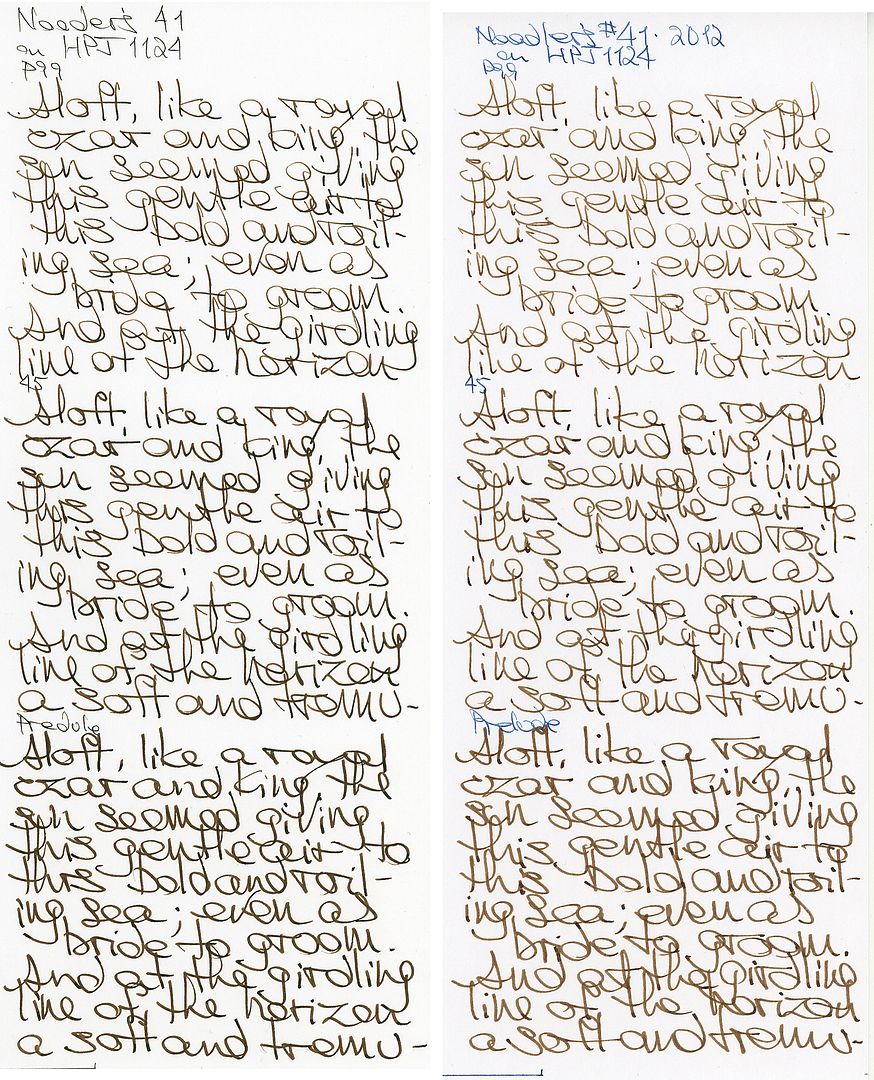 Noodler's 41
on HPJ1124
P99
Aloft, like a royal
czar and king, the
sun seemed giving
this gentle air to
this bold and roll-
ing sea; even as
bride to groom.
And at the girdling
line of the horizon
45
Aloft, like a royal
czar and king, the
sun seemed giving
this gentle air to
this bold and roll-
ing sea; even as
bride, to groom.
And at the girdling
line of the horizon
a soft and tremu-
Prelude
Aloft, like a royal
czar and king, the
sun seemed giving
this gentle air to
this bold and roll-
ing sea; even as
bride to groom.
And at the girdling
line of the horizon
a soft and tremu-
Noodler's #41. 2012
on HPJ1124
P99
Aloft, like a royal
czar and king, the
sun seemed giving
this gentle air to
this bold and roll-
ing sea; even as
bride to groom.
And at the girdling
line of the horizon
45
Aloft, like a royal
czar and king, the
sun seemed giving
this gentle air to
this bold and roll-
ing sea; even as
bride, to groom.
And at the girdling
line of the horizon
a soft and tremu-
Prelude
Aloft, like a royal
czar and king, the
sun seemed giving
this gentle air to
this bold and roll-
ing sea; even as
bride to groom.
And at the girdling
line of the horizon
a soft and tremu-